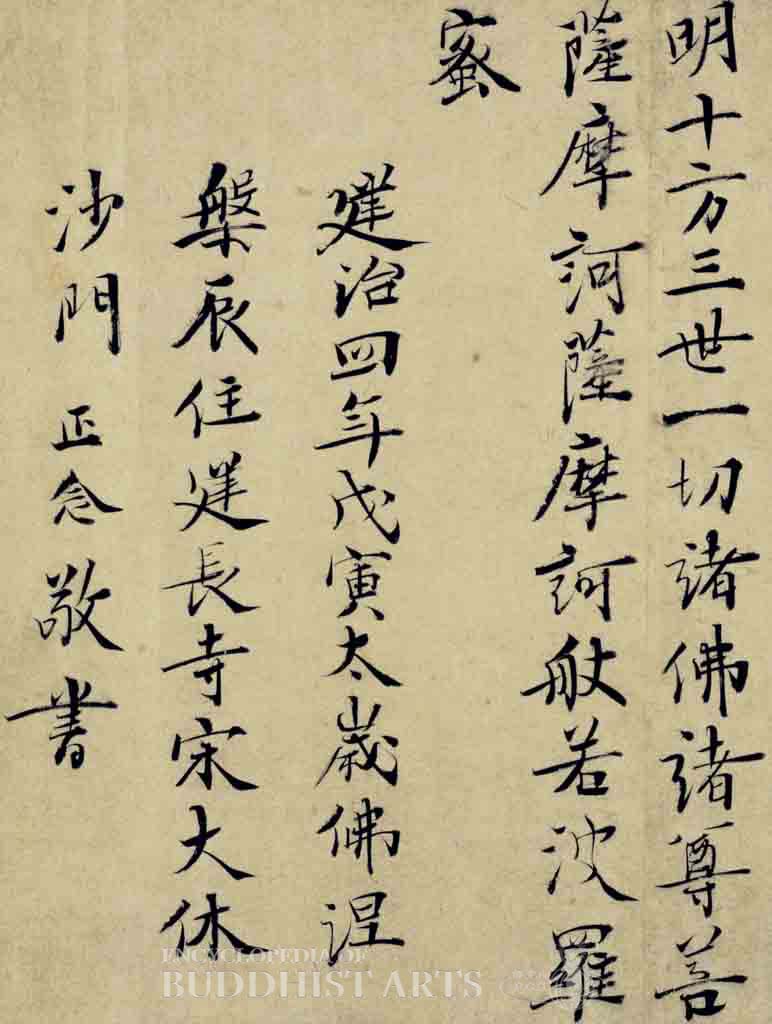 明十方三世一切諸佛諸尊菩
薩摩訶薩摩訶般若波羅
蜜
建治四年戊寅太歲佛涅
槃辰住建長寺宋大休
沙門 正念敬書
ENCYCLOPEDIA OF
BUDDHIST ARTS